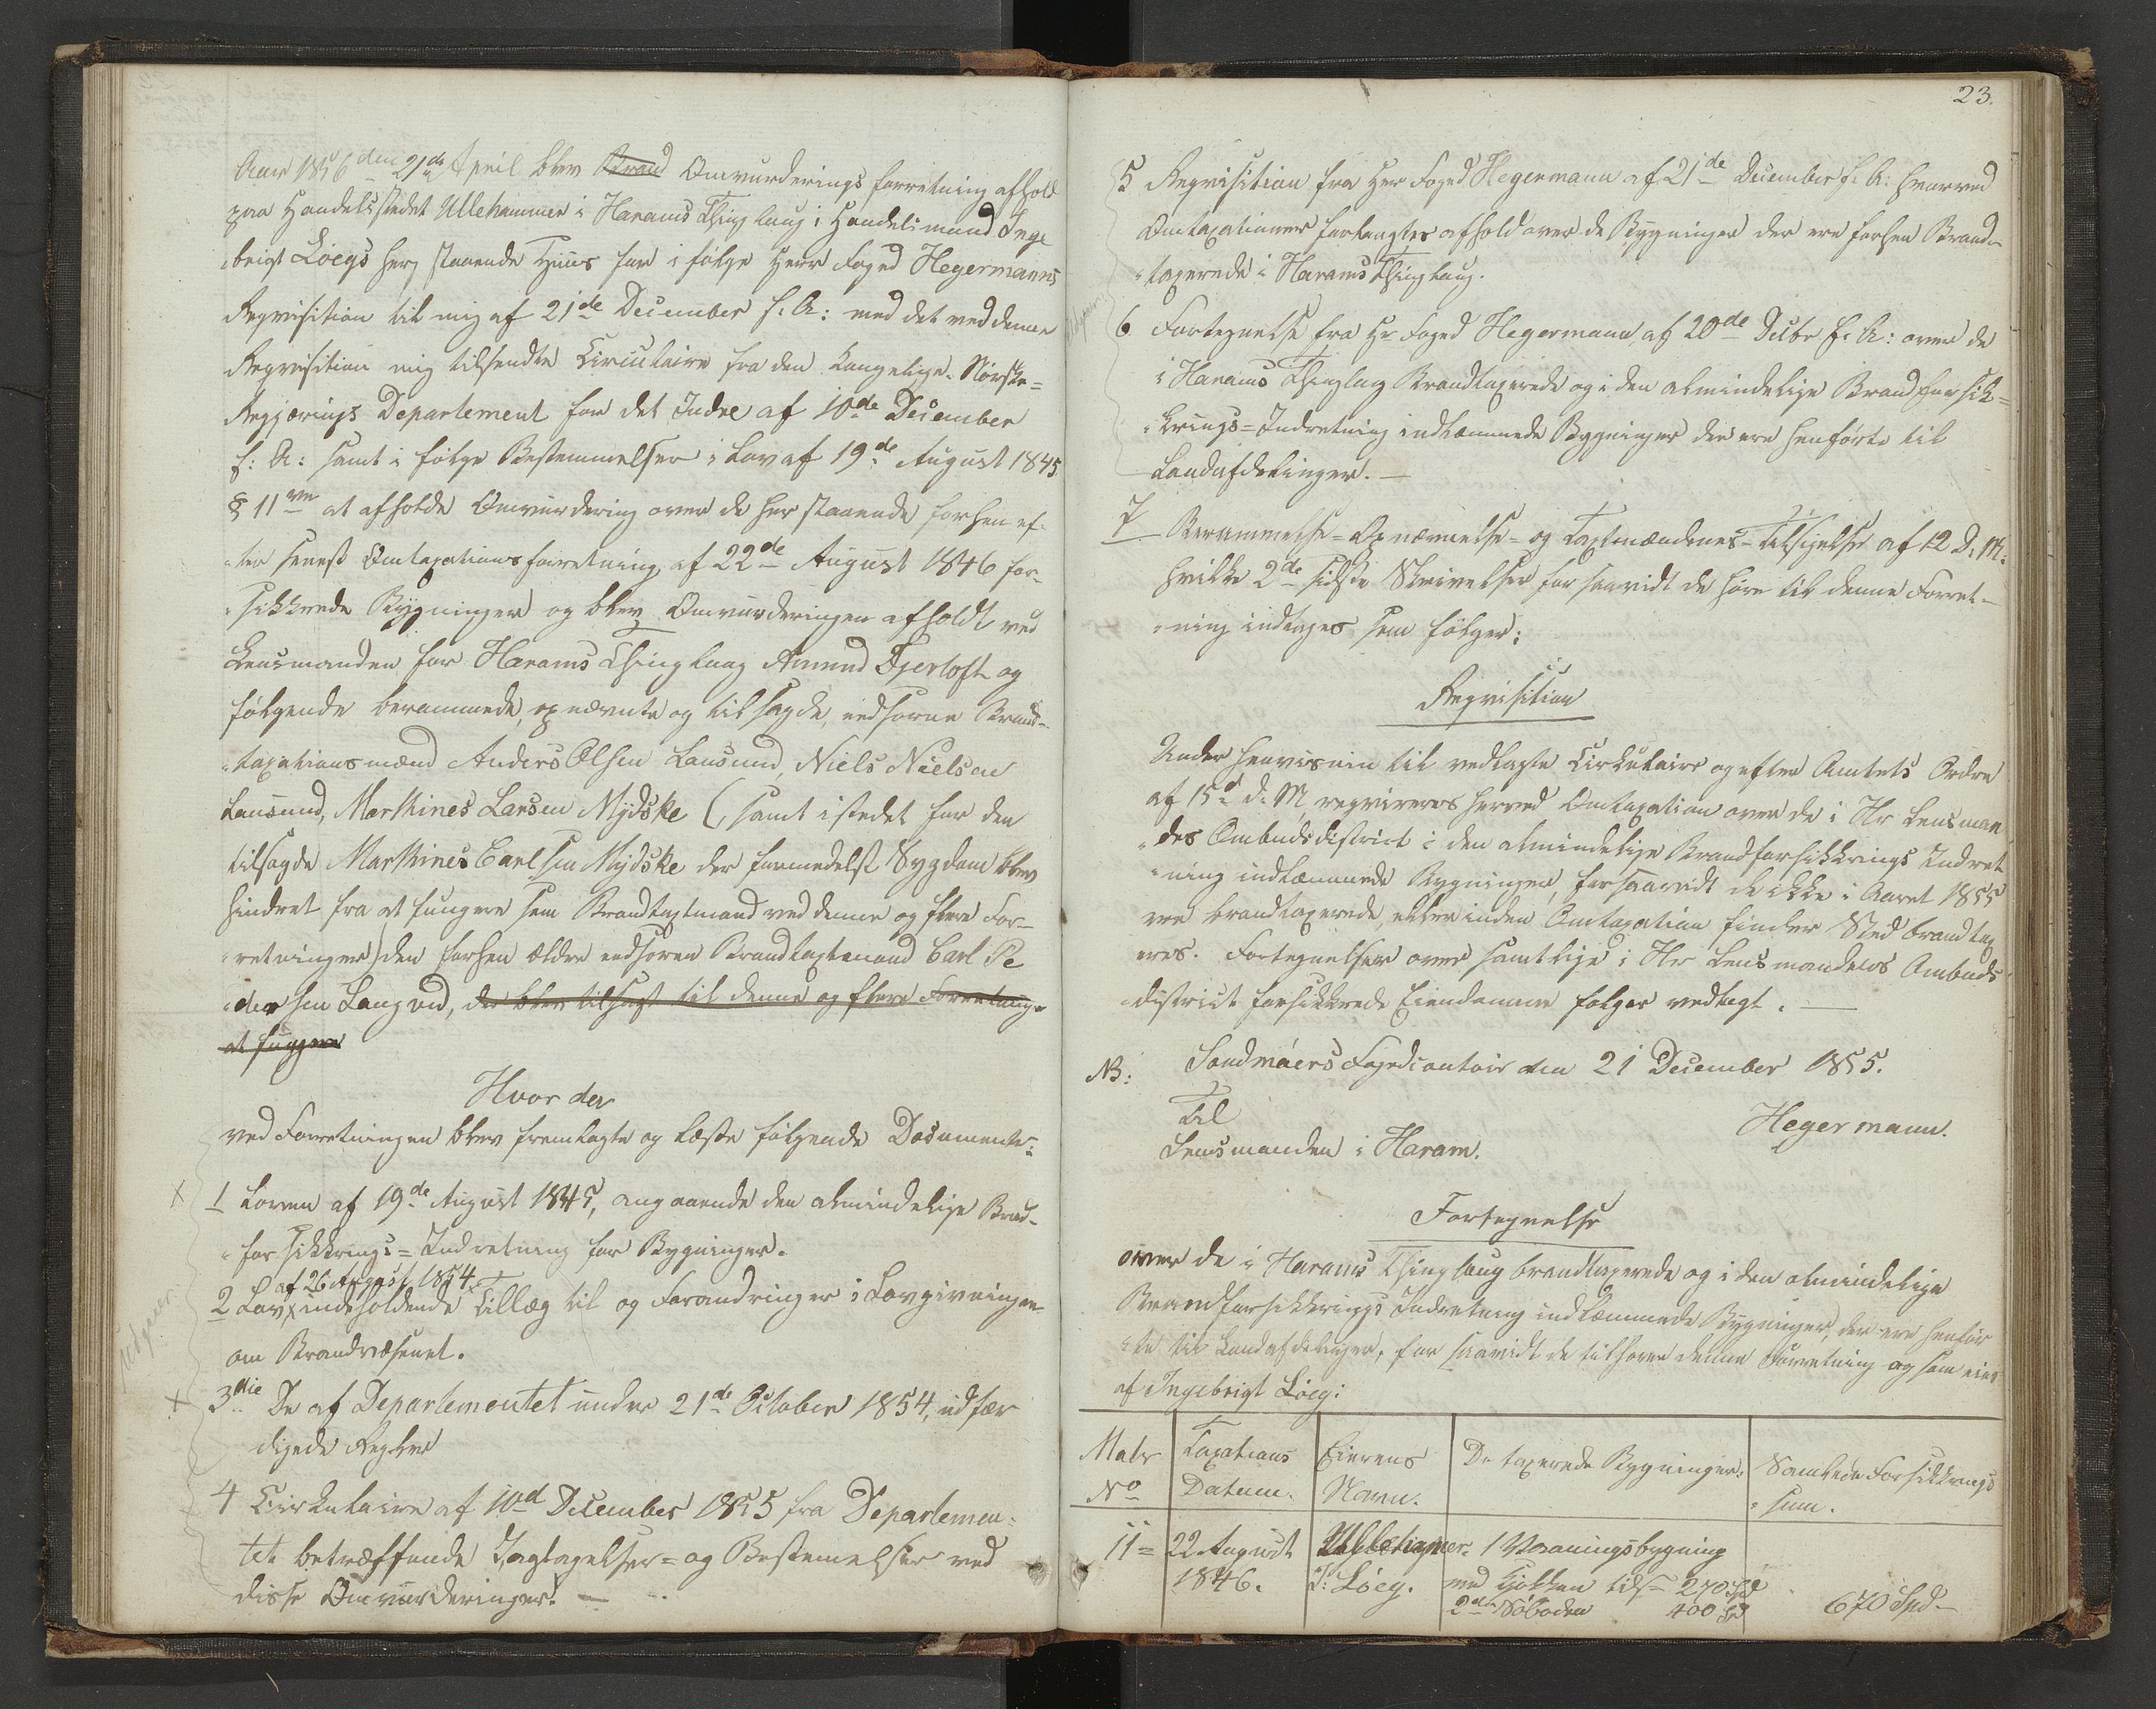 Aar 1856 den 21de April blev Brand Omvurderings forretning afhold
paa Handelsstedet Ullehammer i Harams Thinglaug i Handelsmand Inge
"brigt Löegs her staaende Huus for i følge Herr Foged Hegermanns
Reqvisition til mig af 21de December f. A: med det ved denne
Reqvisition mig tilsendte Circulaire fra den Kongelige Norske=
Regjerings Departement for det Indre af 10de December
f: A: samt i følge Bestemmelser i Lov af 19de August 1845
§ 11 at afholde Omvurdering over de her staaende forhen ef-
"ter seneste Omtaxationsforretning af 22de August 1846 for-
"sikkrede Bygninger og blev Omvurderingen afholdt ved
Lensmanden for Harams Thinglaug Amund Fjertoft og
følgende berammede, opnævnte og tilsagde, eedsorne Brand-
"taxationsmænd Anders Olsen Lausund, Niels Nielsen
Lausund, Marthines Larsen Mydske (samt istedet for den
tilsagde Marthines Carlsen Mydske der formedelst Sygdom blev
hindret fra at fungere som Brandtaxtmand ved denne og flere For-
"retninger) den forhen ældre eedsoren Brandtaxtmand Carl Pe
"dersen Langved, der blev tilsagt til denne og flere Forretninge
at fungere
Hvor der
ved Forretningen blev fremlagte og læste følgende Documenter:
1 Loven af 19de August 1845, angaaende den almindelige Brand-
"forsikkrings=Indretning for Bygninger.
af 26 August 1854
2 Lov indeholdende Tillæg til og Forandringer i Lovgivningen
om Brandvæsenet.
Udgaaer.
3die De af Departementet under 21de October 1854, udfær
digede Regler
4 Cirkulaire af 10de December 1855 fra Departemen-
tet betræffende Iagtagelser= og Bestemelser ved
disse Omvurderinger. —
23.
5 Reqvisition fra Herr Foged Hegermann af 21de December f. A: hvorved
Omtaxationer forlangtes afhold over de Bygninger der ere forhen Brand-
"taxerede i Harams Thinglaug.
6 Fortegnelse fra Hr Foged Hegermann af 20de Decbr f. A: over de
i Harams Thinglag Brandtaxerede og i den almindelige Brandforsik=
"krings=Indretning indlemmede Bygninger der ere henførte til
Landafdelinger. —
7 Berammelse= Opnævnelse= og Taxtmændenes=Tilsigelse af 12 D. M:
hvilke 2de sidste Skrivelser forsaavidt de høre til denne Forret-
"ning indtages som følger:
Reqvisition
Under henvisning til vedlagte Cirkulaire og efter Amtets Ordre
af 15de d. M. reqvireres herved Omtaxation over de i Hr Lensman
"des Ombudsdistrict i den almindelige Brandforsikkrings Indret
"ning indlemmede Bygninger, forsaavidt de ikke i Aaret 1855
ere brandtaxerede, eller inden Omtaxation finder Sted brandtax
eres. Fortegnelser over samtlige i Hr Lensmandens Ombuds
district forsikkrede Eiendomme følger vedlagt. —
NB: Søndmøers Fogedcontoir den 21 December 1855.
Til
Hegermann.
Lensmanden i Haram.
Fortegnelse
over de i Harams Thinglaug brandtaxerede og i den almindelige
Brandforsikkrings Indretning indlemmede Bygninger, der ere henför
"te til Landafdelinger, for saavidt de tilhører denne Forretning og som eies
af Ingebrigt Löeg:
Matr No
Taxations Datum.
Eierens Navn.
De taxerede Bygninger.
Samlede Forsikkrings "sum.
11=
22 August 1846.
Ullehammer. I: Löeg.
1 Vaaningsbygning
med Kjøkken tils. 270 Spd
2den Søboden 400 Spd
670 Spd-